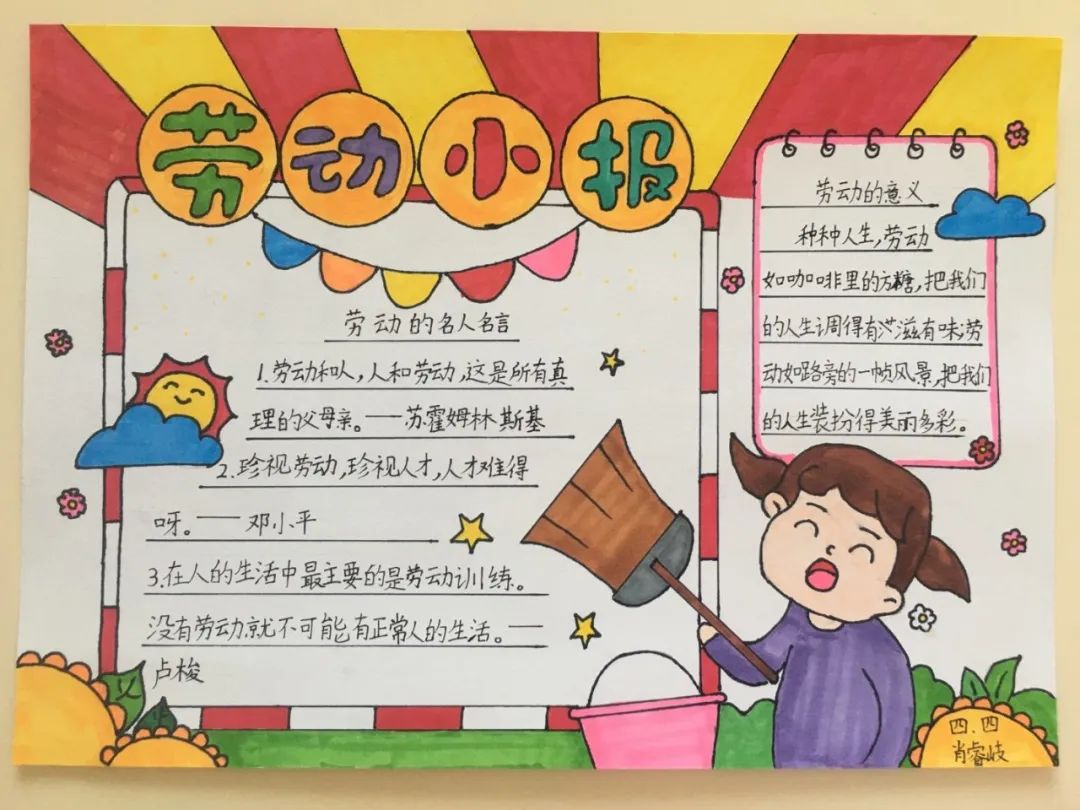 劳动小报
劳动的名人名言
1.劳动和人,人和劳动,这是所有真
理的父母亲。——苏霍姆林斯基
2.珍视劳动,珍视人才,人才难得
呀。——邓小平
3.在人的生活中最主要的是劳动训练。
没有劳动就不可能有正常人的生活。——
卢梭
劳动的意义
种种人生,劳动
如咖啡里的方糖,把我们
的人生调得有滋有味;劳
动如路旁的一帧风景,把我们
的人生装扮得美丽多彩。
四.四
肖睿岐